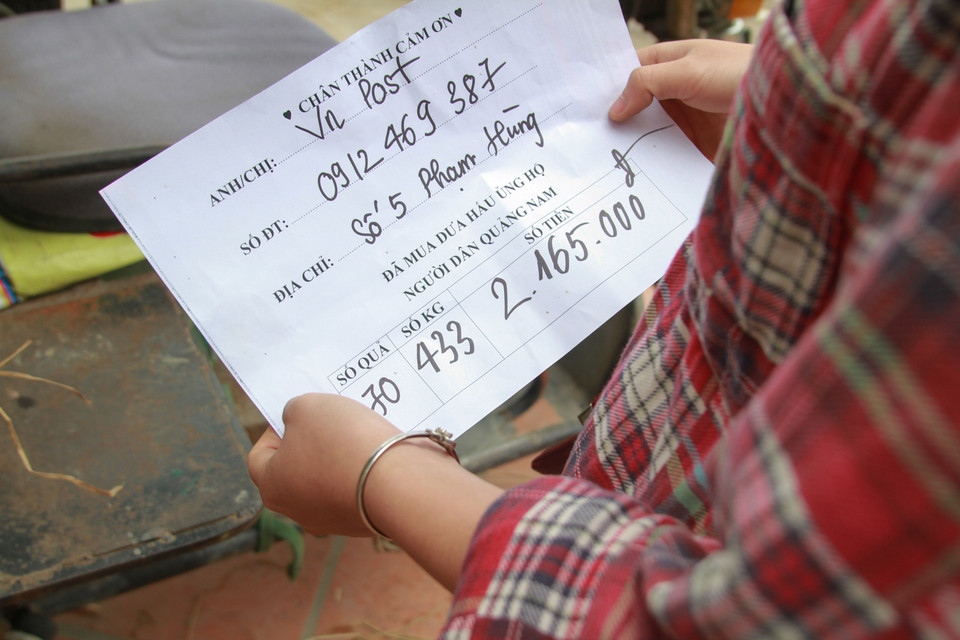 ♥ CHÂN THÀNH CẢM ƠN ♥
ANH/CHỊ: Vn Post
SỐ ĐT: 0912 469 387
ĐỊA CHỈ: Số 5 Phạm Hùng
ĐÃ MUA DƯA HẤU ỦNG HỘ
NGƯỜI DÂN QUẢNG NAM
SỐ QUẢ SỐ KG SỐ TIỀN
70 433 2.165.000 đ